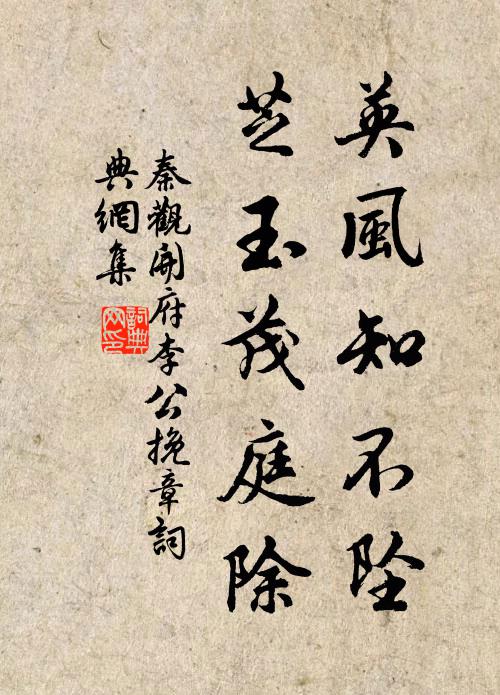 英風知不墜
芝玉茂庭除
秦觀開府李公挽章詞
典網集
詞典
网印